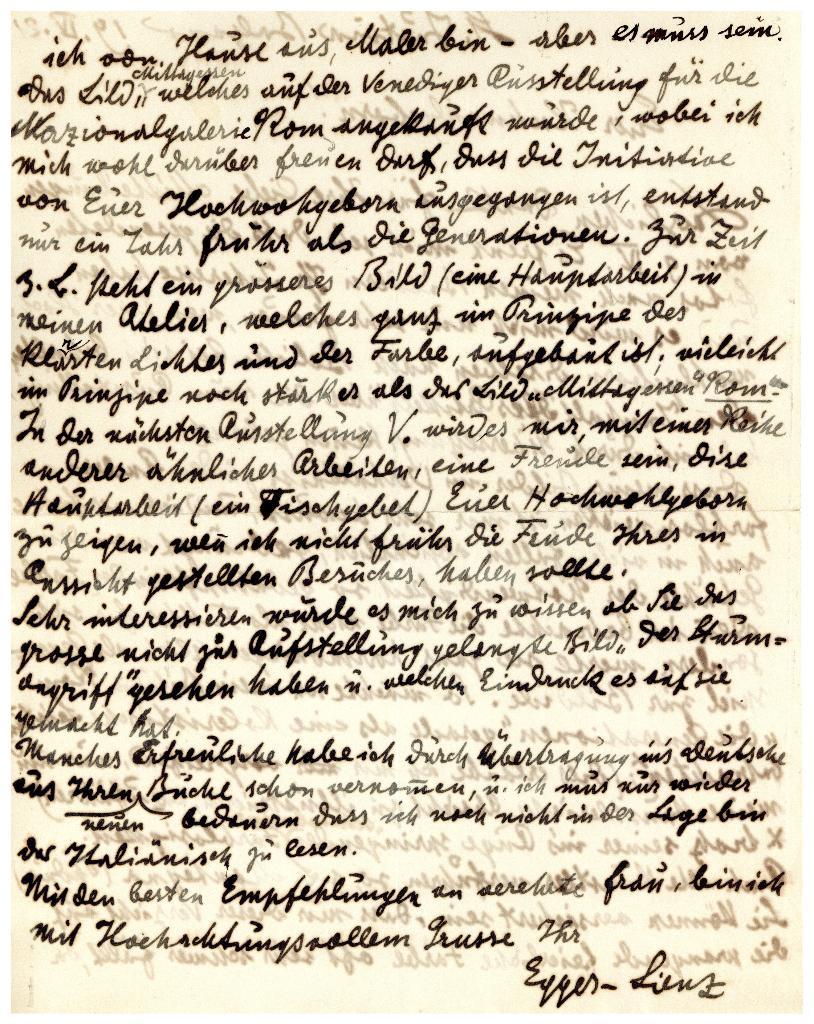 ich von Hause aus, Maler bin – aber es muss sein.
das Bild „Mittagessen" welches auf der Venediger Ausstellung für die
Nazionalgalerie Rom angekauft wurde, wobei ich
mich wohl darüber freuen darf, dass die Initiative
von Euer Hochwohgeborn ausgegangen ist, entstand
nur ein Jahr frühr als die Generationen. Zur Zeit
z. B. steht ein grösseres Bild (eine Hauptarbeit) in
meinen Atelier, welches ganz im Prinzipe des
klarsten Lichtes und der Farbe, aufgebaut ist, vieleicht
im Prinzipe noch stärker als das Bild „Mittagessen" Rom-
In der nächsten Ausstellung V. wird es mir, mit einer Reihe
anderer ähnlicher Arbeiten, eine Freude sein, dise
Hauptarbeit (ein Tischgebet) Euer Hochwohlgeborn
zu zeigen, wen̄ ich nicht frühr die Feude Ihres in
Aussicht gestellten Besuches, haben sollte.
Sehr interessieren würde es mich zu wissen ob Sie das
grosse nicht zur Aufstellung gelangte Bild „der Sturm=
angriff" gesehen haben u. welchen Eindruck es auf sie
gemacht hat.
Manches Erfreuliche habe ich durch Übertragung ins deutsche
aus Ihren neuen Buche schon vernom̄en, u. ich mus nur wieder
bedauern dass ich noch nicht in der Lage bin
das Italiänisch zu lesen.
Mit den besten Empfehlungen an verehrte frau, bin ich
mit Hochachtungsvollem Grusse Ihr
Egger-Lienz